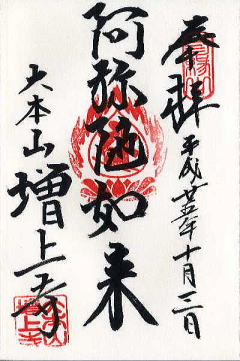 奉拝
平成廿五年十月三日
阿弥陀如来
大本山
増上寺